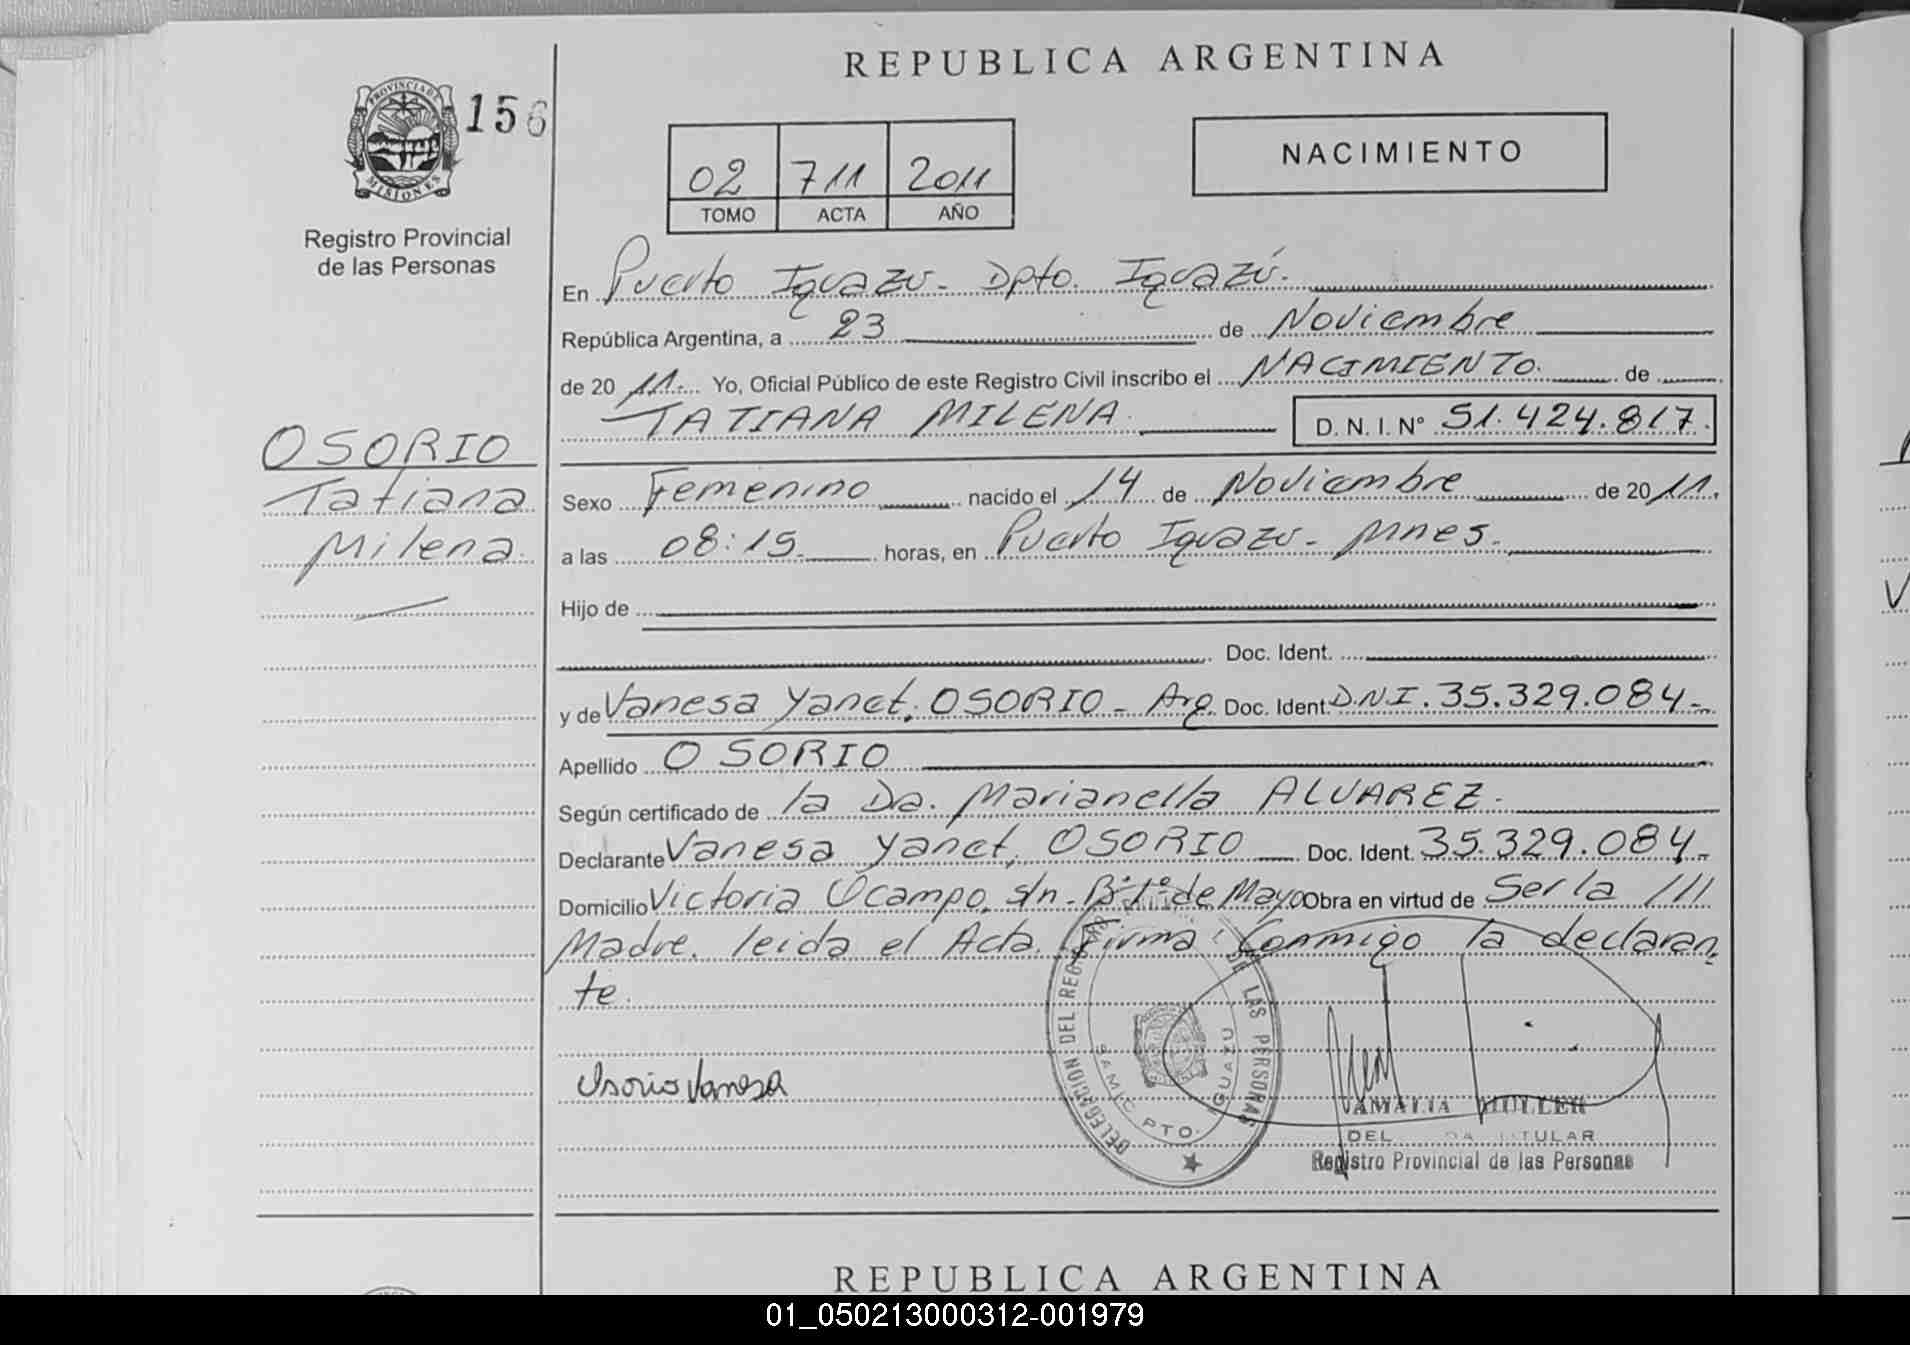 REPUBLICA ARGENTINA
PROVINCIA DE
MISIONES
156
Registro Provincial
de las Personas
02 711 2011
TOMO ACTA AÑO
NACIMIENTO
En Puerto Iguazú - Dpto. Iguazú.
República Argentina, a 23 de Noviembre
de 20 11. Yo, Oficial Público de este Registro Civil inscribo el NACIMIENTO. de
TATIANA MILENA. D. N. I. N° 51.424.817.
OSORIO
Tatiana
Milena.
Sexo Femenino nacido el 14 de Noviembre de 20 11.
a las 08:15 horas, en Puerto Iguazú - Mnes.
Hijo de
Doc. Ident.
y de Vanesa Yanet, OSORIO - Arg. Doc. Ident. DNI. 35.329.084-
Apellido OSORIO
Según certificado de la Dra. Marianella ALVAREZ.
Declarante Vanesa Yanet, OSORIO Doc. Ident. 35.329.084-
Domicilio Victoria Ocampo, s/n - B° 1° de Mayo Obra en virtud de Ser la ///
Madre. leida el Acta. Firma Conmigo la declaran
te.
Osorio Vanesa
DELEGACION DEL REGISTRO DE LAS PERSONAS
SAMIC PTO. IGUAZU
AMALIA MULLER
TITULAR
Registro Provincial de las Personas
REPUBLICA ARGENTINA
01_050213000312-001979